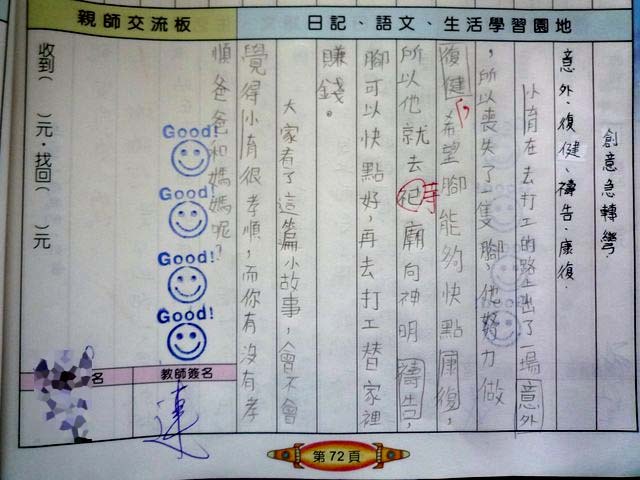 親師交流板
日記、語文、生活學習園地
創意急轉彎.
意外.復健、禱告.康復.
小育在去打工的路上出了一場意外
，所以喪失了一隻腳，他努力做
復健，希望腳能夠快點康復，
所以他就去祀廟向神明禱告，
腳可以快點好，再去打工替家裡
賺錢。
大家看了這篇小故事，會不會
覺得小育很孝順，而你有沒有孝
順爸爸和媽媽呢？
Good!
Good!
Good!
Good!
收到( )元，找回( )元
教師簽名
名
連
第72頁